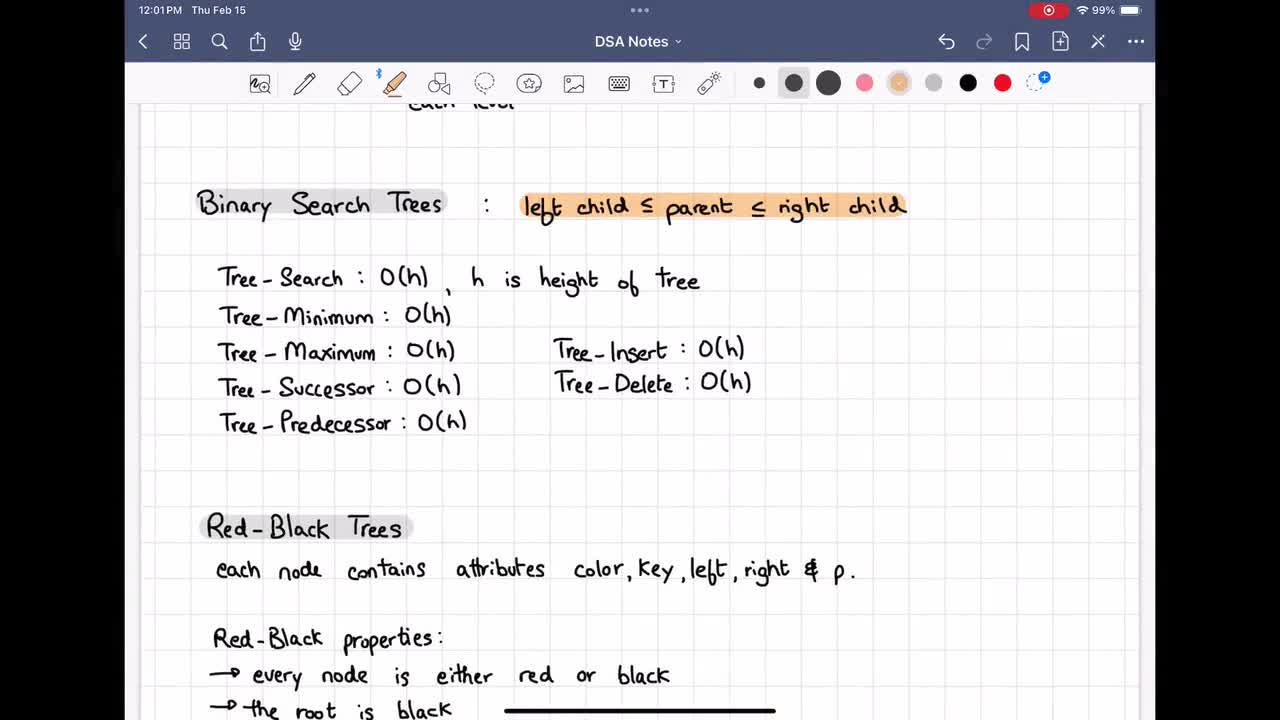 12:01 PM Thu Feb 15
99%
DSA Notes
T
each level
Binary Search Trees : left child ≤ parent ≤ right child
Tree-Search : O(h), h is height of tree
Tree-Minimum : O(h)
Tree-Maximum : O(h) Tree-Insert : O(h)
Tree-Successor : O(h) Tree-Delete : O(h)
Tree-Predecessor : O(h)
Red-Black Trees
each node contains attributes color, key, left, right & p.
Red-Black properties:
→ every node is either red or black
→ the root is black